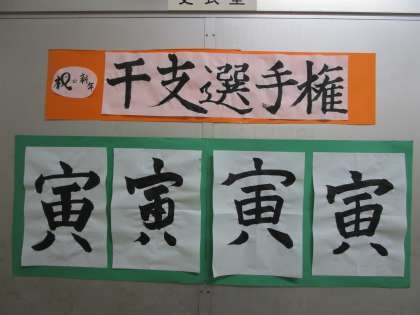 祝☆新年
干支選手権
寅 寅 寅 寅